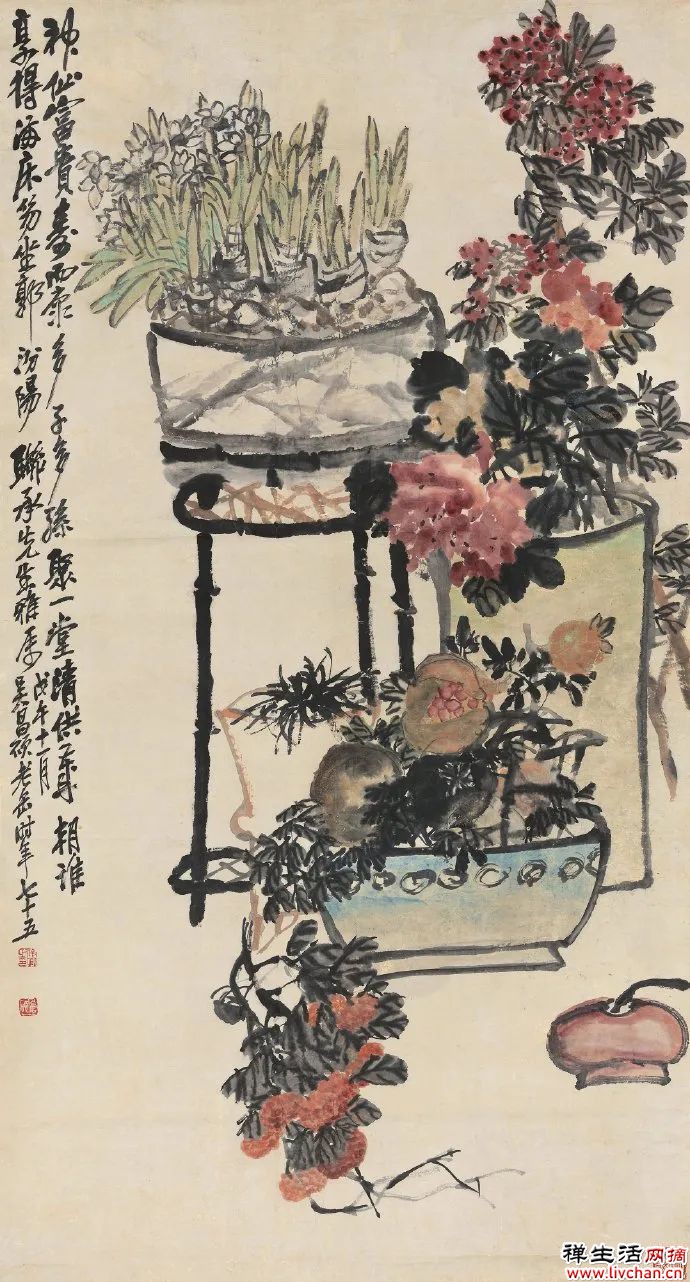 神仙富貴壽而康多子多孫聚一堂清供朝誰
享得滿床笏坐郭汾陽聯承先生雅屬
戊午十一月
吳昌碩老缶時年七十五
禅生活网摘
www.livchan.cn